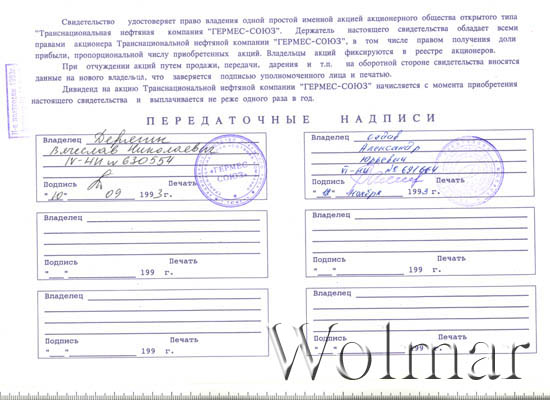 Свидетельство удостоверяет право владения одной простой именной акцией акционерного общества открытого типа
"Транснациональная нефтяная компания "ГЕРМЕС-СОЮЗ". Держатель настоящего свидетельства обладает всеми
правами акционера Транснациональной нефтяной компании "ГЕРМЕС-СОЮЗ", в том числе правом получения доли
прибыли, пропорциональной числу приобретенных акций. Владельцы акций фиксируются в реестре акционеров.
При отчуждении акций путем продажи, передачи, дарения и т.п. на оборотной стороне свидетельства вносятся
данные на нового владельца, что заверяется подписью уполномоченного лица и печатью.
Дивиденд на акцию Транснациональной нефтяной компании "ГЕРМЕС-СОЮЗ" начисляется с момента приобретения
настоящего свидетельства и выплачивается не реже одного раза в год.
ПЕРЕДАТОЧНЫЕ НАДПИСИ
Владелец
Вячеслав Николаевич
IV-НИ № 630554
"ГЕРМЕС-СОЮЗ"
Подпись Печать
"10" 09 1993 г.
Владелец
Александр
Юрьевич
VI-НИ № 691664
Подпись Печать
ноября 1993 г.
Владелец
Подпись Печать
"__" 199 г.
Владелец
Подпись Печать
"__" 199 г.
Владелец
Подпись Печать
"__" 199 г.
Владелец
Подпись
"__"
Wolmar